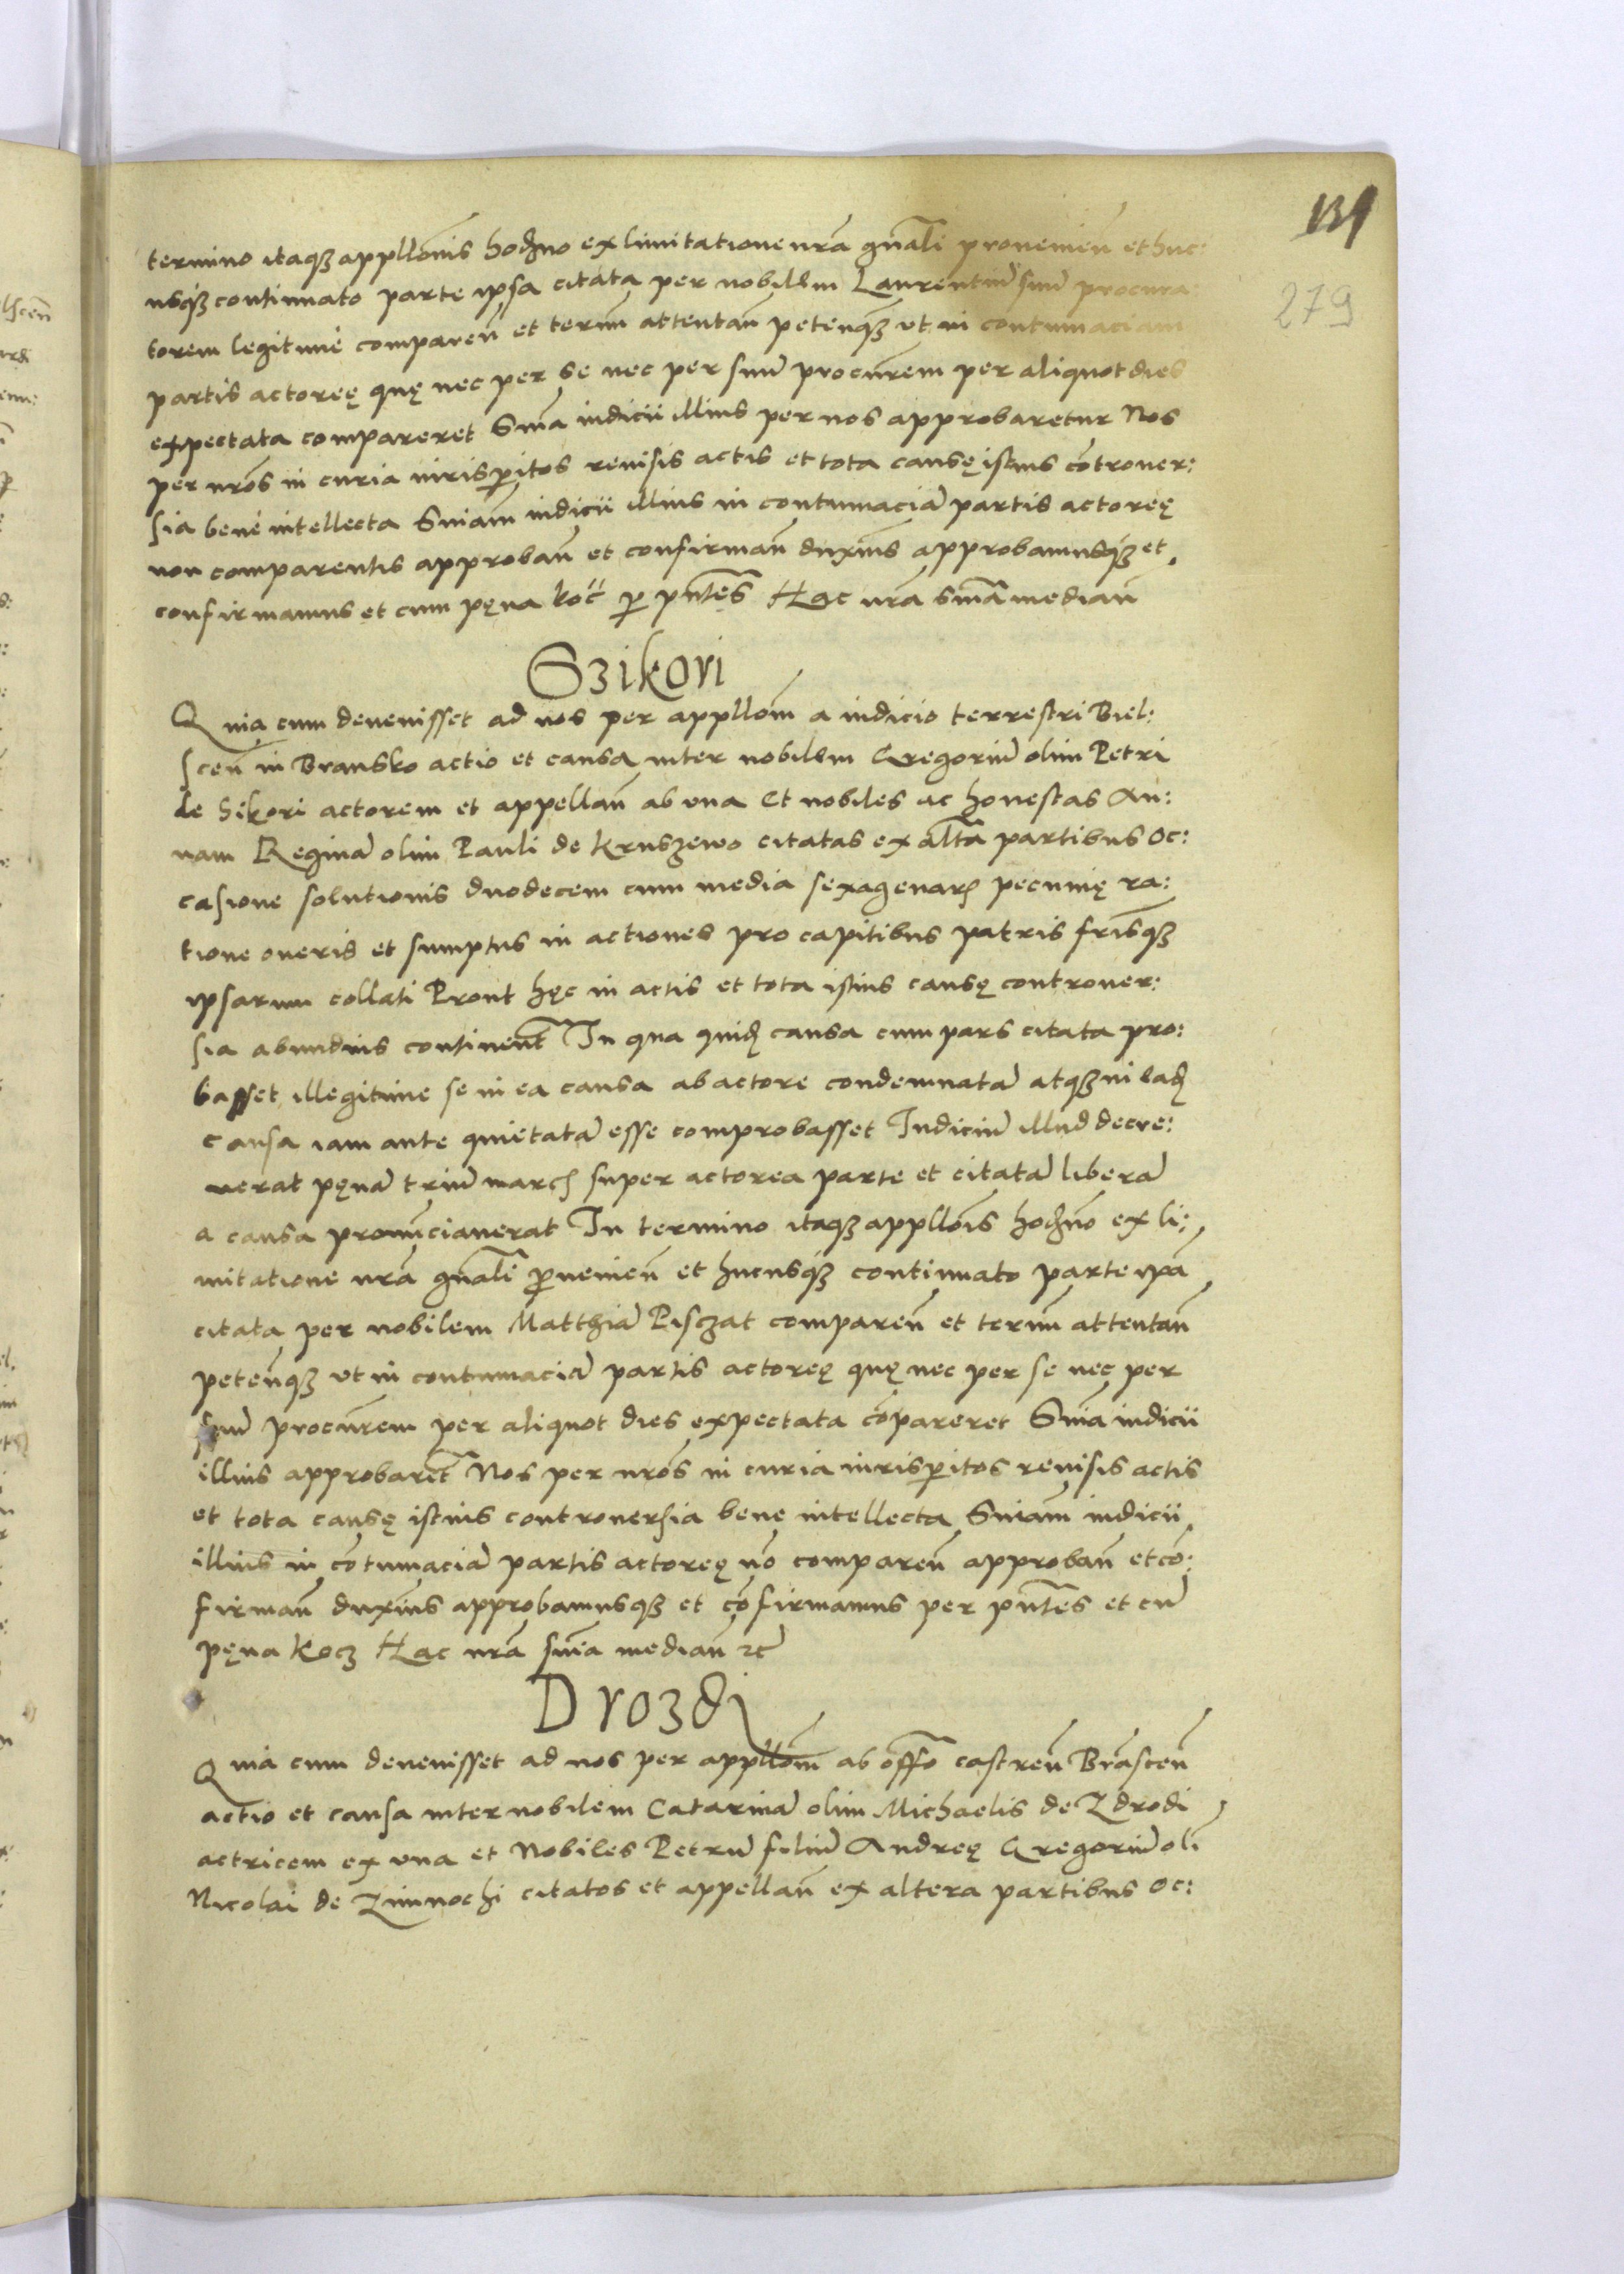 139
279
termino itaqȝ appllonis hodrno ex limitatione nrã gnãli provenien̄ et huc:
usqȝ continuato parte ipsa citata per nobilem Laurentiũ suũ procura:
torem legitime comparen̄ et termñ attentan̄ petenqȝ ut in contumaciam
partis actoreę quę nec per se nec per suũ procũrem per aliquot dies
expectata compareret Sniã iudicii illius per nos approbaretur Nos
per nrõs in curia iurisp̱itos revisis actis et tota causę istius cõtrover:
sia bene intellecta Sniam̄ iudicii illius in contumaciã partis actoreę
non comparentis approban̄ et confirman̄ duxim̄s approbamusqȝ et
confirmamus et cum pęna koc̈ ꝑ pn̄tes Hac nrã sniã median̄
Szikori
Quia cum devenisset ad nos per appllom̄ a iudicio terrestri Biel:
scen̄ in Bransko actio et causa inter nobilem Gregoriũ olim Petri
de Sikori actorem et appellan̄ ab una Et nobiles ac honestas An:
nam Reginã olim Pauli de Kruszewo citatas ex altã partibus oc:
casione solutionis duodecem cum media sexagenarꝭ pecunię ra:
tione oneris et sumptus in actiones pro capitibus patris frisqȝ
ipsarum collati Prout hęc in actis et tota istius causę controver:
sia abundius continent̃ In qua quidꝭ causa cum pars citata pro:
basset illegitime se in ea causa ab actore condemnatã atqȝ in eadꝭ
causa iam ante quietatã esse comprobasset Iudiciũ illud decre:
verat pęnã triũ marcꝭ super actorea parte et citatã liberã
a causa pronũciaverat In termino itaqȝ appllois̄ hodrño ex li:
mitatione nrã gnãli ꝓvenien̄ et hucusqȝ continuato parte ip̄a
citata per nobilem Matthiã Pisczat comparen̄ et termñ attentan̄
petenqȝ ut in contumaciã partis actoreę quę nec per se nec per
suũ procũrem per aliquot dies expectata cõpareret Sniã iudicii
illius approbaret̃ Nos per nrõs in curia iurisp̱itos revisis actis
et tota causę istius controversia bene intellecta Sniam̄ iudicii
illius in cõtumaciã partis actoreę nõ comparen̄ approban̄ et cõ:
firman̄ duxim̄s approbamusqȝ et cõfirmamus per pn̄tes et cũ
pęna Kocz Hac nrã sniã median̄ ꝛc̃
Drozdi
Quia cum devenisset ad nos per appllom̄ ab off̄o castren̄ Brãscen̄
actio et causa inter nobilem Catarinã olim Michaelis de Zdrodi
actricem ex una et Nobiles Petrũ filiũ Andreę Gregoriũ oli
Nicolai de Zimnochi citatos et appellan̄ ex altera partibus oc: